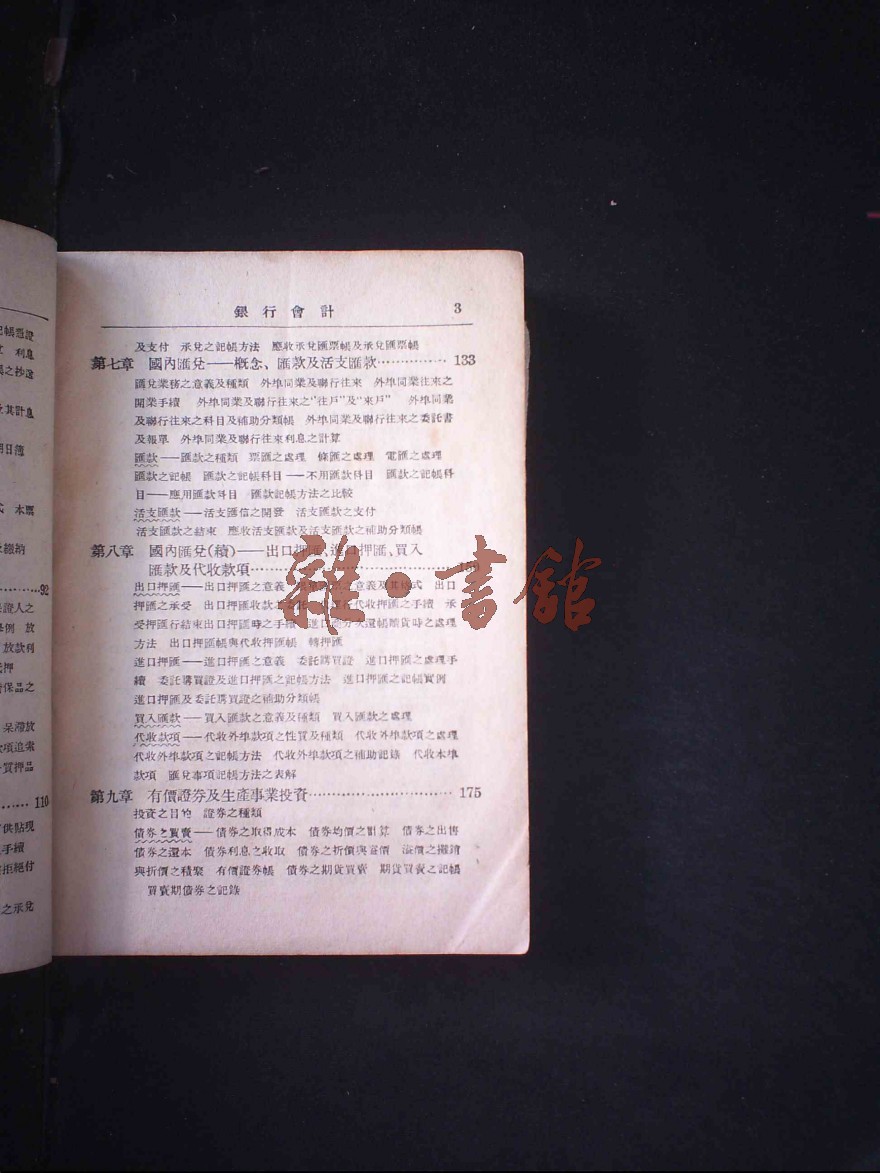 記帳憑證
利息
之抄送
其計息
日簿
本票
繳納
92
證人之
例 放
放款利
押
保品之
呆滯放
款項追索
質押品
110
供貼現
手續
拒絕付
之承兌
銀行會計 3
及支付 承兌之記帳方法 應收承兌匯票帳及承兌匯票帳
第七章 國內匯兌——概念、匯款及活支匯款…………… 133
匯兌業務之意義及種類 外埠同業及聯行往來 外埠同業往來之
開業手續 外埠同業及聯行往來之"往戶"及"來戶" 外埠同業
及聯行往來之科目及補助分類帳 外埠同業及聯行往來之委託書
及報單 外埠同業及聯行往來利息之計算
匯款——匯款之種類 票匯之處理 條匯之處理 電匯之處理
匯款之記帳 匯款之記帳科目——不用匯款科目 匯款之記帳科
目——應用匯款科目 匯款記帳方法之比較
活支匯款——活支匯信之開發 活支匯款之支付
活支匯款之結束 應收活支匯款及活支匯款之補助分類帳
第八章 國內匯兌(續)——出口押匯、進口押匯、買入
匯款及代收款項……………………………
出口押匯——出口押匯之意義 之意義及其格式 出口
押匯之承受 出口押匯收款 代收押匯之手續 承
受押匯行結束出口押匯時之手續 進口商分次還帳贖貨時之處理
方法 出口押匯帳與代收押匯帳 轉押匯
進口押匯——進口押匯之意義 委託購買證 進口押匯之處理手
續 委託購買證及進口押匯之記帳方法 進口押匯之記帳實例
進口押匯及委託購買證之補助分類帳
買入匯款——買入匯款之意義及種類 買入匯款之處理
代收款項——代收外埠款項之性質及種類 代收外埠款項之處理
代收外埠款項之記帳方法 代收外埠款項之補助記錄 代收本埠
款項 匯兌事項記帳方法之表解
第九章 有價證券及生產事業投資…………………………… 175
投資之目的 證券之種類
債券之買賣——債券之取得成本 債券均價之計算 債券之出售
債券之還本 債券利息之收取 債券之折價與溢價 溢價之攤銷
與折價之積聚 有價證券帳 債券之期貨買賣 期貨買賣之記帳
買賣期債券之記錄
雜·書館